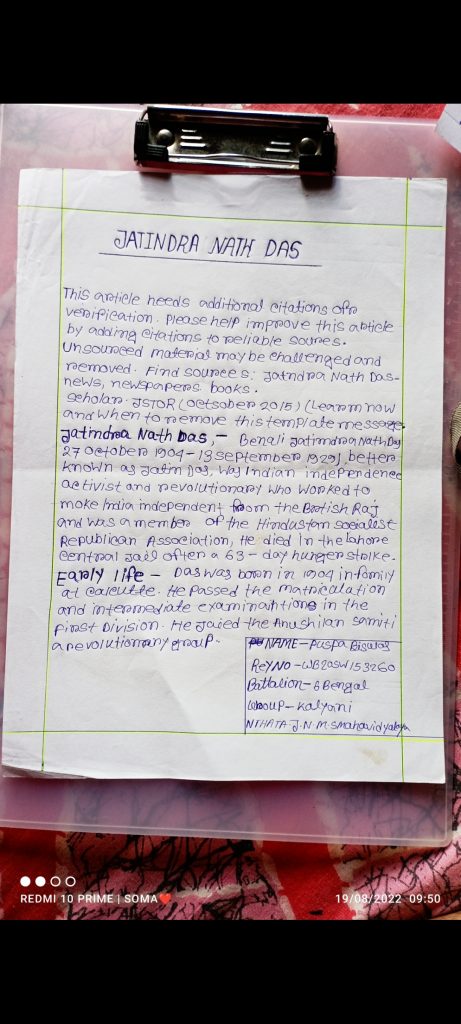 JATINDRA NATH DAS
This article needs additional citations ofr
verification. Please help improve this abticle
by adding citations to reliable soures.
Unsourced material may be challenged and
removed. Find sources: Jatndra Nath Das-
news, newspapers books.
scholar. JSTOR (Octsober 2015) (Learn now
and when to remove this template message.
Jatindra Nath Das,- Benali Jatimdra Nath Das
27 october 1904 - 13 september 1929), better
known as Jatin Das, was Indian independence
activist and revolutionary who worked to
make India independent from the British Raj
and was a member of the Hindustan socialist
Republican Association, He died in the lahore
central Jail after a 63- day hunger strike.
Early life - Das was born in 1904 in family
at calcutte. He passed the matriculation
and intermediate examinations in the
First Division. He joied the Anushilan samiti
a revolutionary group.
NAME - Puspa Biswas
Rey NO - WB20SW153260
Battalion - 6 Bengal
Group - Kalyani
J.N.M.S Mahavidyalaya
REDMI 10 PRIME | SOMA❤️
19/08/2022 09:50